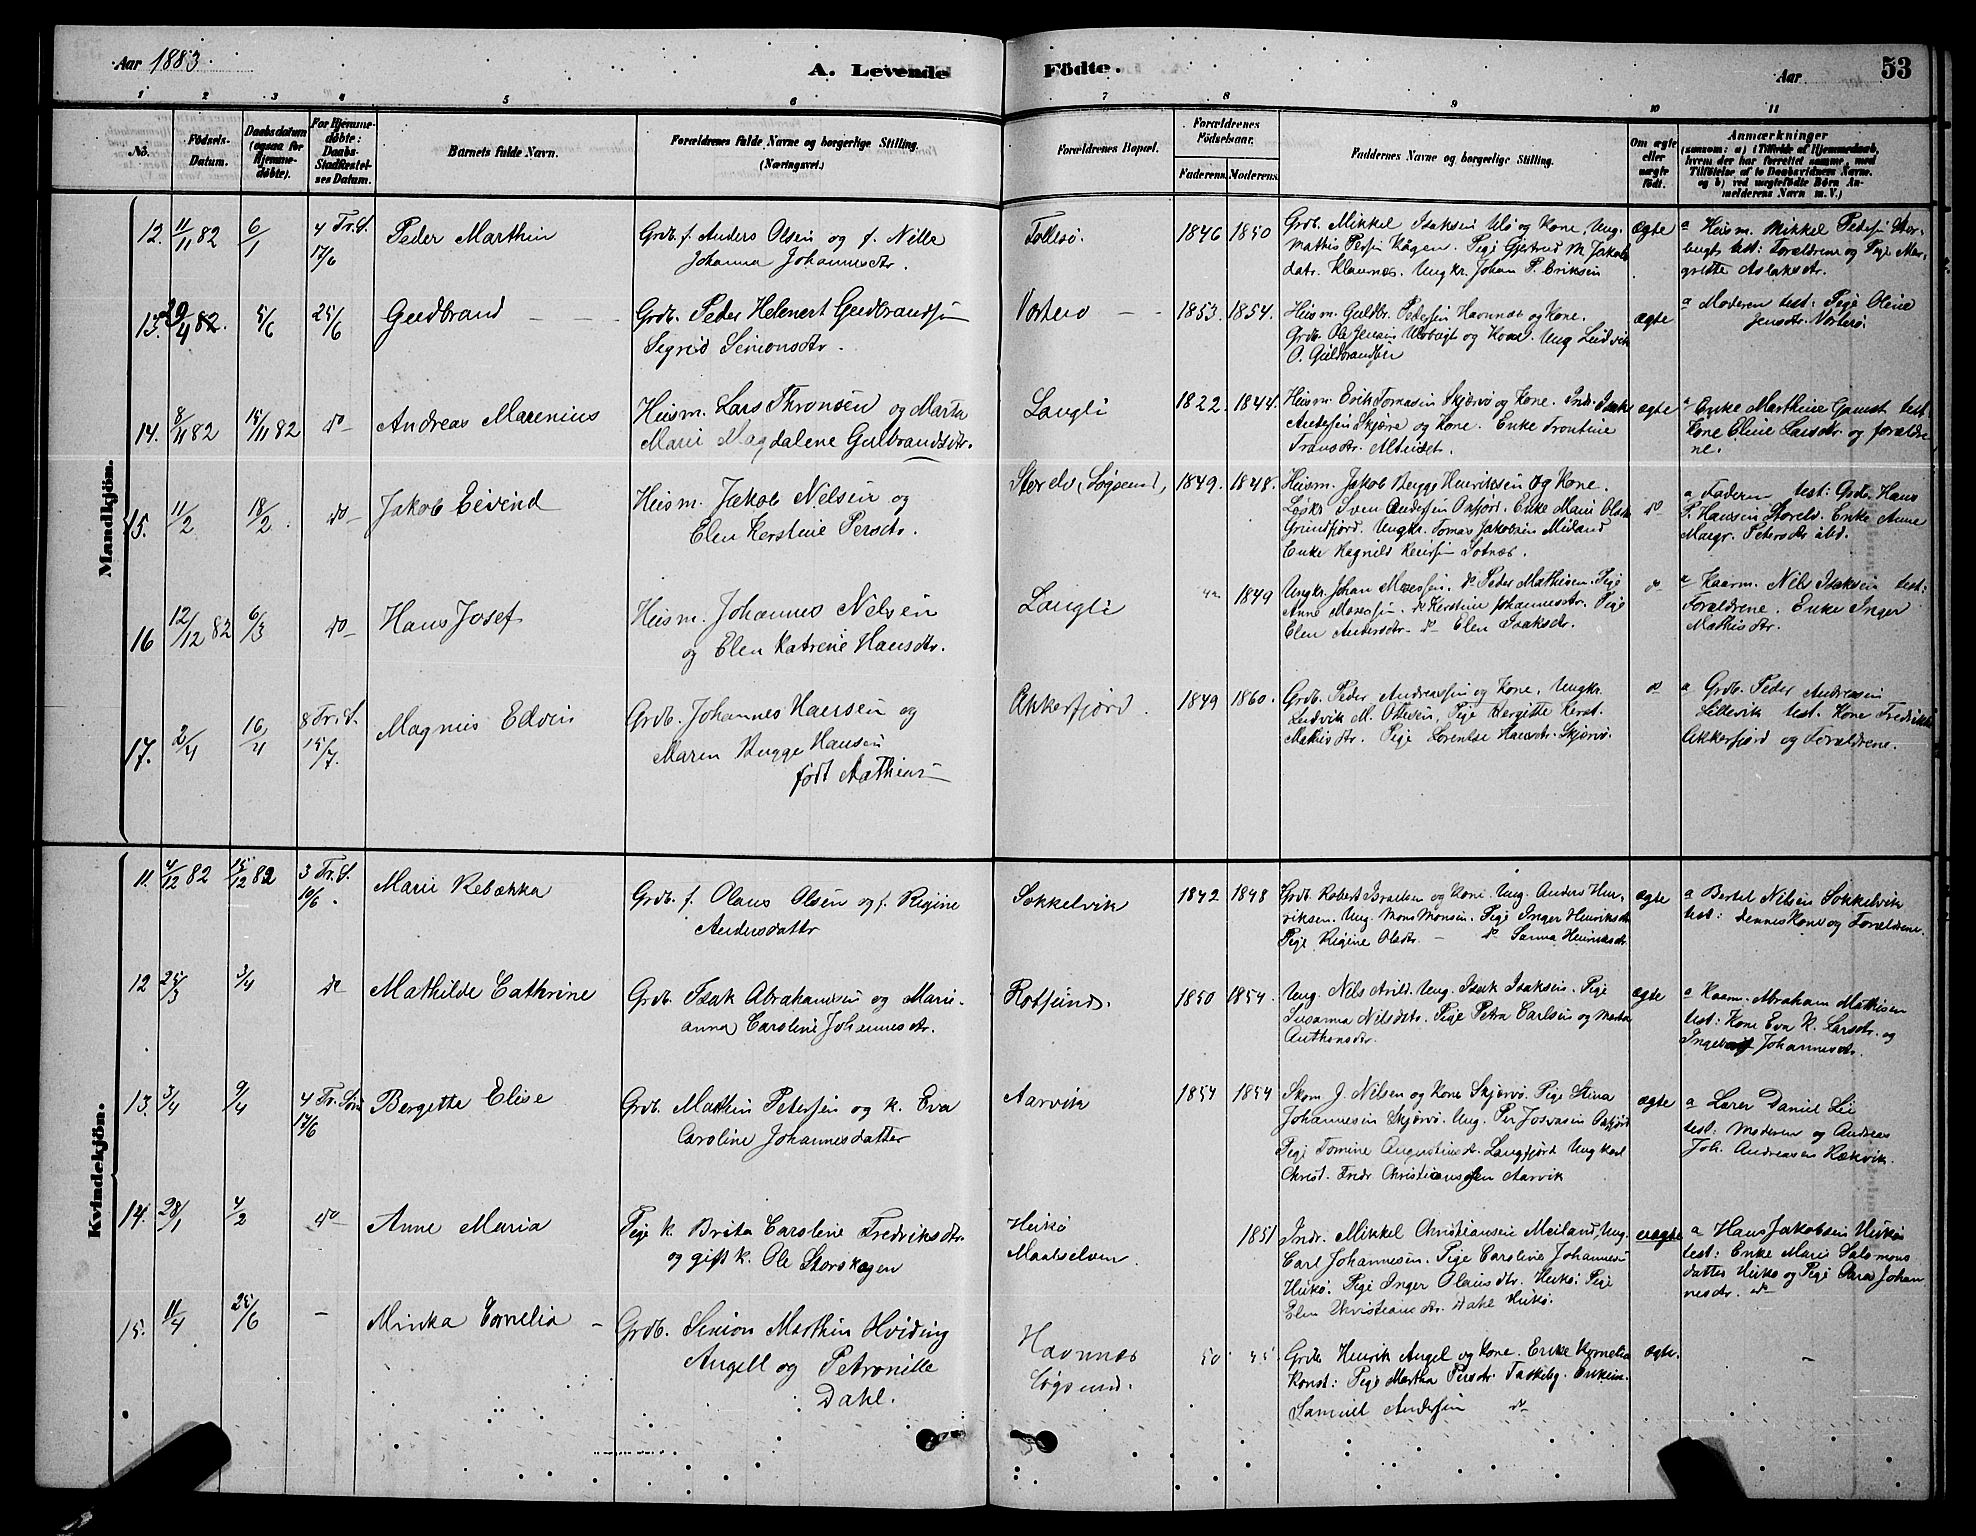 Aar 1883.
A. Levende Fødte.
Aar
53
1 2 3 4 5 6 7 8 9 10 11
No.
Fødsels-Datum.
Daabsdatum (ogsaa for Hjemmedøbte).
For Hjemmedøbte: Daabs-Stadfæstelses Datum.
Barnets fulde Navn.
Forældrenes fulde Navne og borgerlige Stilling. (Næringsvei.)
Forældrenes Bopæl.
Forældrenes Fødselsaar.
Faderens. Moderens.
Faddernes Navne og borgerlige Stilling.
Om ægte eller uægte født.
Anmærkninger
(saasom: a) i Tilfælde af Hjemmedaab, hvem der har forrettet samme, med Tilføielse af to Daabsvidners Navne, og b) ved uægtefødte Børn Anmelderens Navn m. V.)
Mandkjön.
12. 11/11 82 6/1 4 Tr. S. 17/6
Peder Marthin
Grdb. f. Anders Olsen og f. Nille
Johanna Johannesdtr.
1846 1850
Grdb. Mikkel Isaksen Ulø og Kone, Ung.
Mathis Persen Kågen. Pige Gjertrud M. Jakobs
datr. Klaunæs. Ungkr. Johan P. Eriksen
ægte
a Husm. Mikkel Pedersen Stor-
bugt test: Forældrene og Pige Mar-
grethe Aslaksdtr.
13. 29/4 82. 5/6 25/6
Gudbrand
Grdb. Peder Helmert Gudbrandsen
Sigrid Simonsdtr.
Vorterø
1853. 1854.
Husm. Guldbr. Pedersen Havnnæs og Kone.
Grdb. Ole Jensen Uløbugt og Kone. Ung Ludvik
O. Guldbrandsen
ægte
a Moderen test: Pige Oline
Jensdtr. Vorterø.
14. 8/11 82 15/11 82 do
Andreas Marenius
Husm. Lars Thronsen og Marta
Marie Magdalene Gulbrandsdtr.
Langli
1822. 1844.
Husm. Erik Tomasen Skjærvø og Kone. Indr. Isak
Andersen Skjærø og Kone. Enke Trontine
Transdtr. Alteidet.
ægte
a Enke Marthine Gamst test.
Kone Eline Larsdtr. og forældre
ne.
15. 11/2 18/2. do
Jakob Eivind
Husm. Jakob Nilsen og
Elen Kerstine Persdtr.
Storelv, (Løgsund),
1849. 1848.
Husm. Jakob Bugge Henriksen og Kone.
Løskr Sven Andersen Oxfjord. Enke Marie Olsdtr
Grundfjord. Ungkr. Tomas Jakobsen Meiland
Enke Ragnild Sotnæs.
do
a Faderen test: Grdb. Hans
P. Hansen Storelv. Enke Anne
Margr. Petersdtr ibd.
16 12/12 82 6/3 do
Hans Josef
Husm. Johannes Nilsen
og Elen Katrine Hansdtr.
Langli
1849
Ungkr. Johan Mosessen. do Peder Mathisen. Pige
Anne Mosessen. do Kerstine Johannesdtr. Pige
Elen Andersdtr. do Elen Isaksdtr.
do
a Kaarm. Nils Isaksen test:
Forældrene. Enke Inger
Mathisdtr.
17. 2/4 16/4 8 Tr. S. 15/7.
Magnus Edvin
Grdb. Johannes Hansen og
Maren Bugge Hansen
født Mathiens
Akkerfjord.
1849 1860.
Grdb. Peder Andreassen og Kone, Ungkr.
Ludvik M. Ottesen, Pige Bergitte Kerst.
Mathisdtr. Pige Lorentse Hansdtr. Skjærvø.
do
a Grdb. Peder Andreasen
Lillevik test. Kone Fredrikke
Akkerfjord og Forældrene.
Kvindekjön.
11. 4/12 82 15/12 82 3 Tr. S. 10/6.
Marie Rebækka
Grdb. f. Olaus Olsen og f. Regine
Andersdattr
Sokkelvik
1842 1848
Grdb. Robert Israelsen og Kone Ung. Anders Hen-
riksen. Ung. Mons Monsen. Pige Inger Henriksdtr
Pige Regine Olsdtr. do Sanna Henriksdtr.
ægte
a Bertel Nilsen Sokkelvik
test: dennes Kone og Forældrene.
12 25/3 3/4 do
Mathilde Cathrine
Grdb. Isak Abrahamsen og Mari-
anna Caroline Johannesdtr.
Rotsund.
1850 1854.
Ung. Nils Arild. Ung. Isak Isaksen. Pige
Susanna Nilsdtr. Pige Petra Carlsen og Marta
Anthonsdtr.
ægte
a Kaarm. Abraham Mathisen
test: Kone Eva K. Larsdtr. og
Johannesdtr.
13. 3/4 9/4 4 Tr. Sön 17/6
Bergette Elise
Grdb. Mathin Petersen og k. Eva
Caroline Johannesdatter
Aarvik
1854 1854
Skom. J. Nilsen og Kone Skjærvø. Pige Stina
Johannesen Skjærvø. Ung. Per Josvasen Oxfjord
Pige Tomine Augustinsdtr. Langfjord Ungkarl
Christ. Fredr. Christiansen Aarvik
ægte
a Lærer Daniel Lie
test: Moderen og Andreas
Joh. Andreasen Rækvik.
14. 28/1 4/2 do
Anne Maria
Pige k. Brita Caroline Fredriksdtr.
og gift k. Ole Storskogen
Hukø
Maalselven.
1851
Indr. Mikkel Christiansen Meiland, Ung.
Carl Johannesen. Pige Caroline Johannes
Hukø. Pige Inger Olausdtr. Hukø: Pige
Elen Christiansdtr. Dahl Hukø.
uægte
a Hans Jakobsen Hukø
test: Enke Marie Salomons
datter Hukø og Pige Sara Johan
nesdtr. do
15. 11/4 25/6 -
Minka Cornelia
Grdb. Simon Marthin Hviding
Angell og Petronille
Dahl.
Havnnæs
Løgsund.
50 45
Grdb. Henrik Angel og Kone. Enke Kornelia
Konst: Pige Martha Persdtr. Taskeby. Enkem.
Samuel Andersen do
ægte.
-